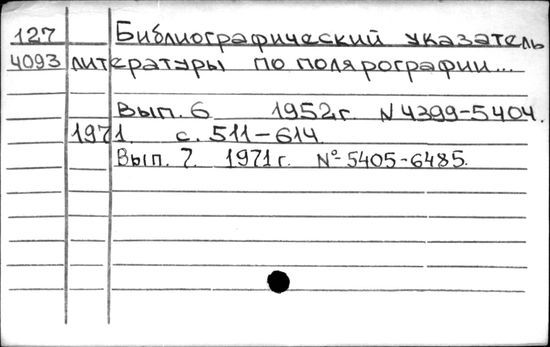 127 Библиографический указатель
4093 литературы по полярографии...
Вып. 6 1952г. N4399-5404.
1971 с. 511-614.
Вып. 7. 1971г. № 5405-6485.